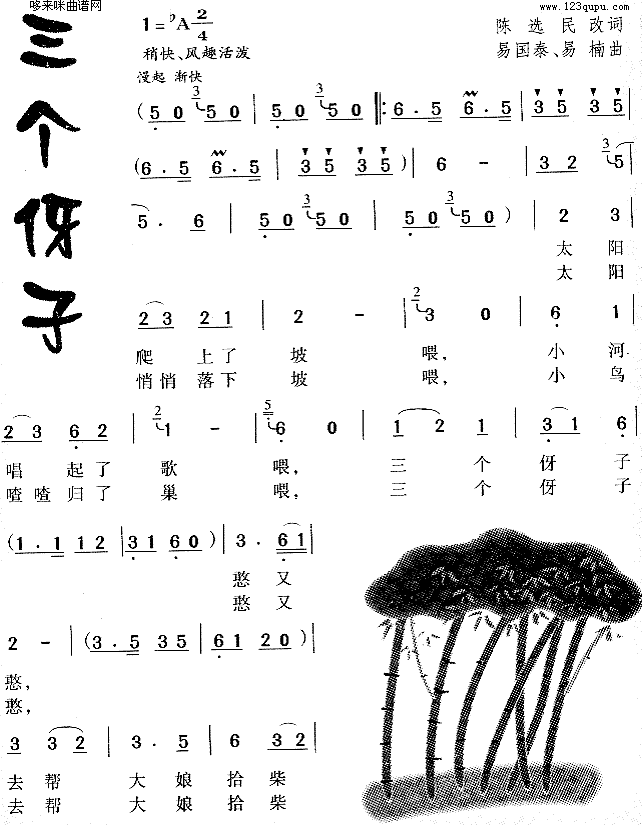 哆来咪曲谱网
www.123qupu.com
三个伢子
1=♭A 2/4
陈选民改词
稍快、风趣活泼
易国泰、易楠曲
渐起 渐快
(5 0 3 5 0 | 5 0 3 5 0 |: 6·5 6·5 | 3 5 3 5 |
(6·5 6·5 | 3 5 3 5) | 6 - | 3 2 3 5 |
5· 6 | 5 0 3 5 0 | 5 0 3 5 0) | 2 3 |
太阳
太阳
2 3 2 1 | 2 - | 2 3 0 | 6 1 |
爬上了坡喂,小河
悄悄落下坡喂,小鸟
2 3 6 2 | 2 1 - | 5 6 0 | 1 2 1 | 3 1 6 |
唱起了歌喂,三个伢子
喳喳归了巢喂,三个伢子
(1·1 1 2 | 3 1 6 0) | 3· 6 1 |
憨又
憨又
2 - | (3·5 3 5 | 6 1 2 0) |
憨,
憨,
3 3 2 | 3· 5 | 6 3 2 |
去帮大娘拾柴
去帮大娘拾柴